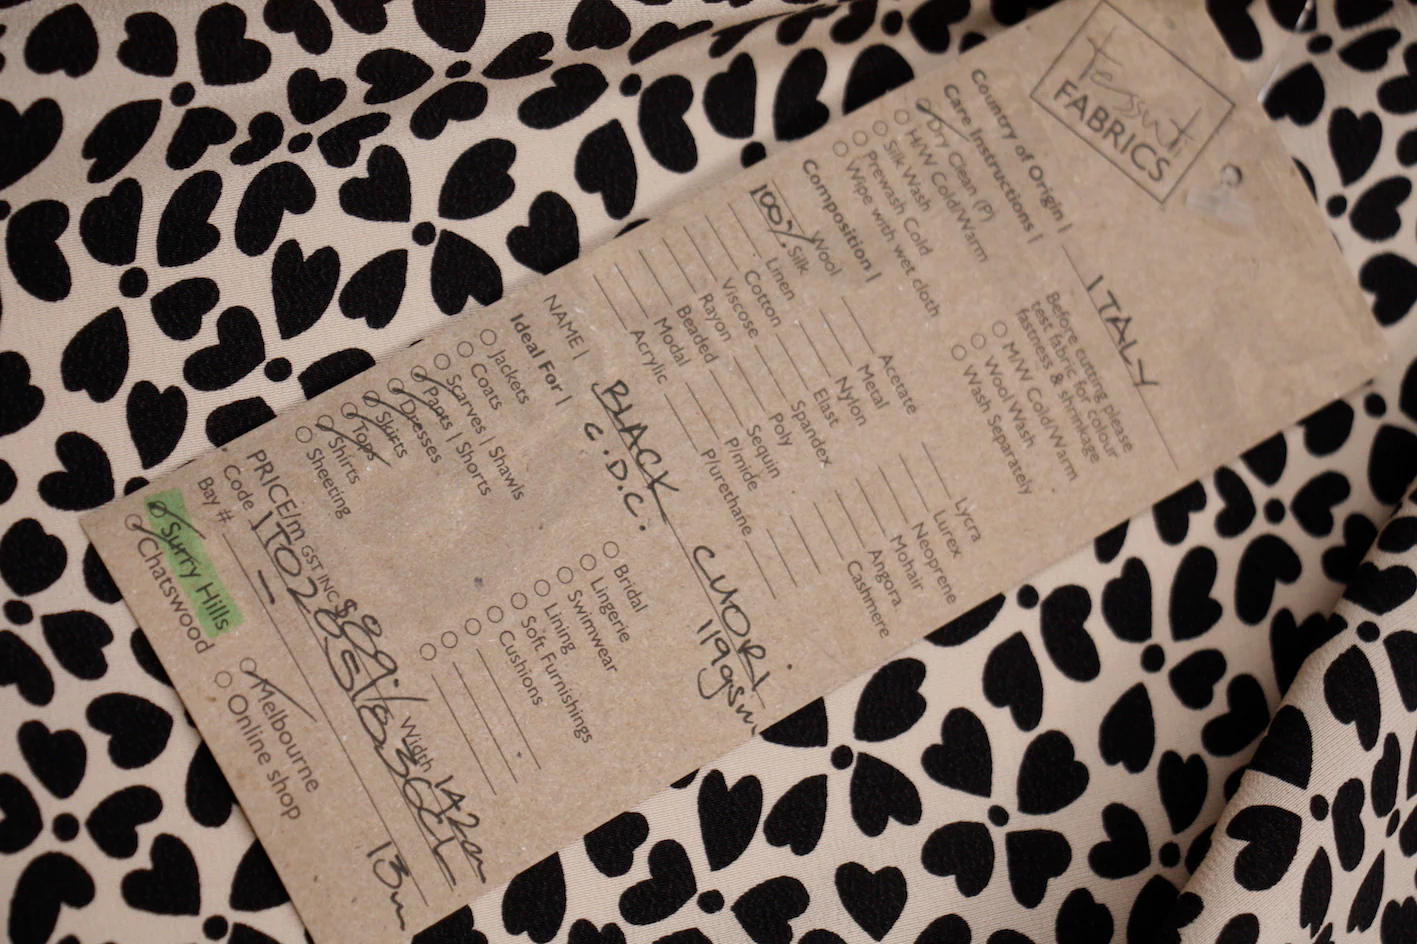 Tessuti
FABRICS
Country of Origin | ITALY
Care Instructions |
Dry Clean (P)
H/W Cold/Warm
Silk Wash
Prewash Cold
Wipe with wet cloth
Before cutting please
test fabric for colour
fastness & shrinkage
M/W Cold/Warm
Wool Wash
Wash Separately
Composition |
Wool
100% Silk
Linen
Cotton
Viscose
Rayon
Beaded
Modal
Acrylic
Acetate
Metal
Nylon
Elast
Spandex
Poly
Sequin
Pimide
Plurethane
Lycra
Lurex
Neoprene
Mohair
Angora
Cashmere
NAME | BLACK CUORI
C.D.C. 119gsm
Ideal For |
Jackets
Coats
Scarves | Shawls
Pants | Shorts
Dresses
Skirts
Tops
Shirts
Sheeting
Bridal
Lingerie
Swimwear
Lining
Soft Furnishings
Cushions
PRICE/m GST INC $89.- Width 142cm
Code |
Bay # - 13m
Surry Hills
Chatswood
Melbourne
Online shop